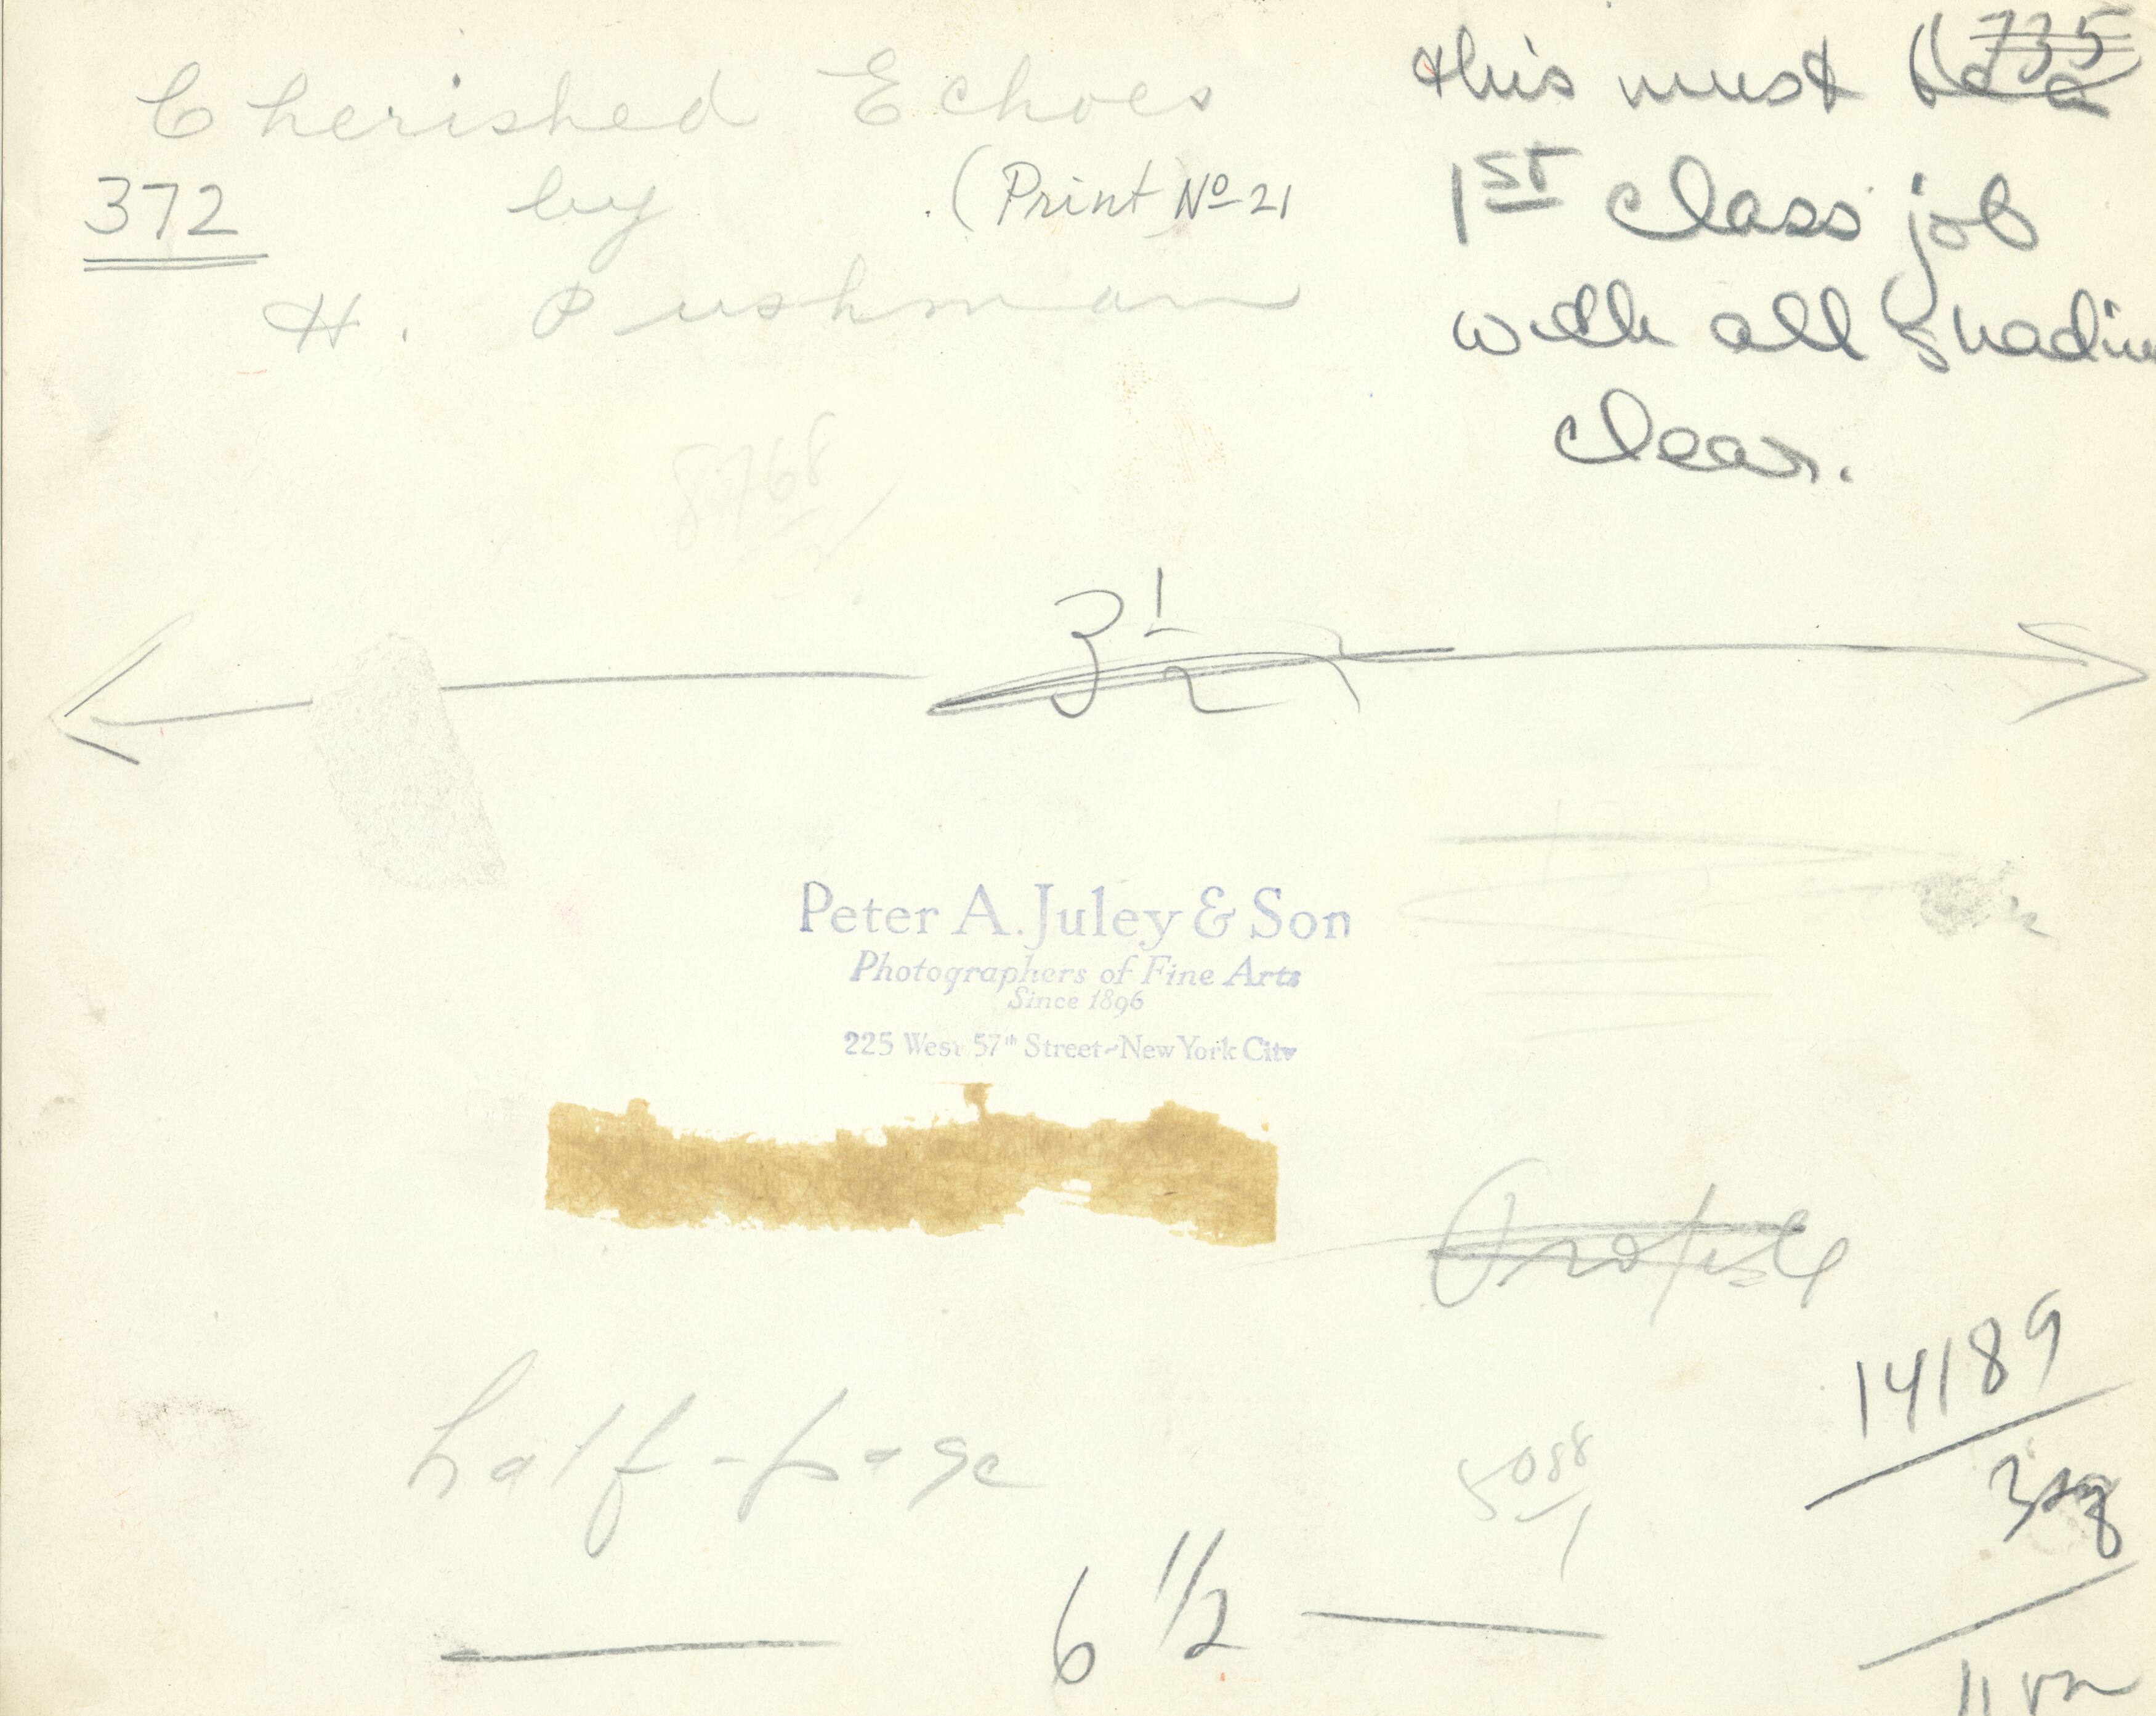 Cherished Echoes
by
H. Pushman
372
(Print No 21
735
this must be a
1st class job
with all shadin
clear.
8768
3 1/2
Peter A. Juley & Son
Photographers of Fine Arts
Since 1896
225 West 57th Street~New York City
half-page
5088
1
14189
6 1/2